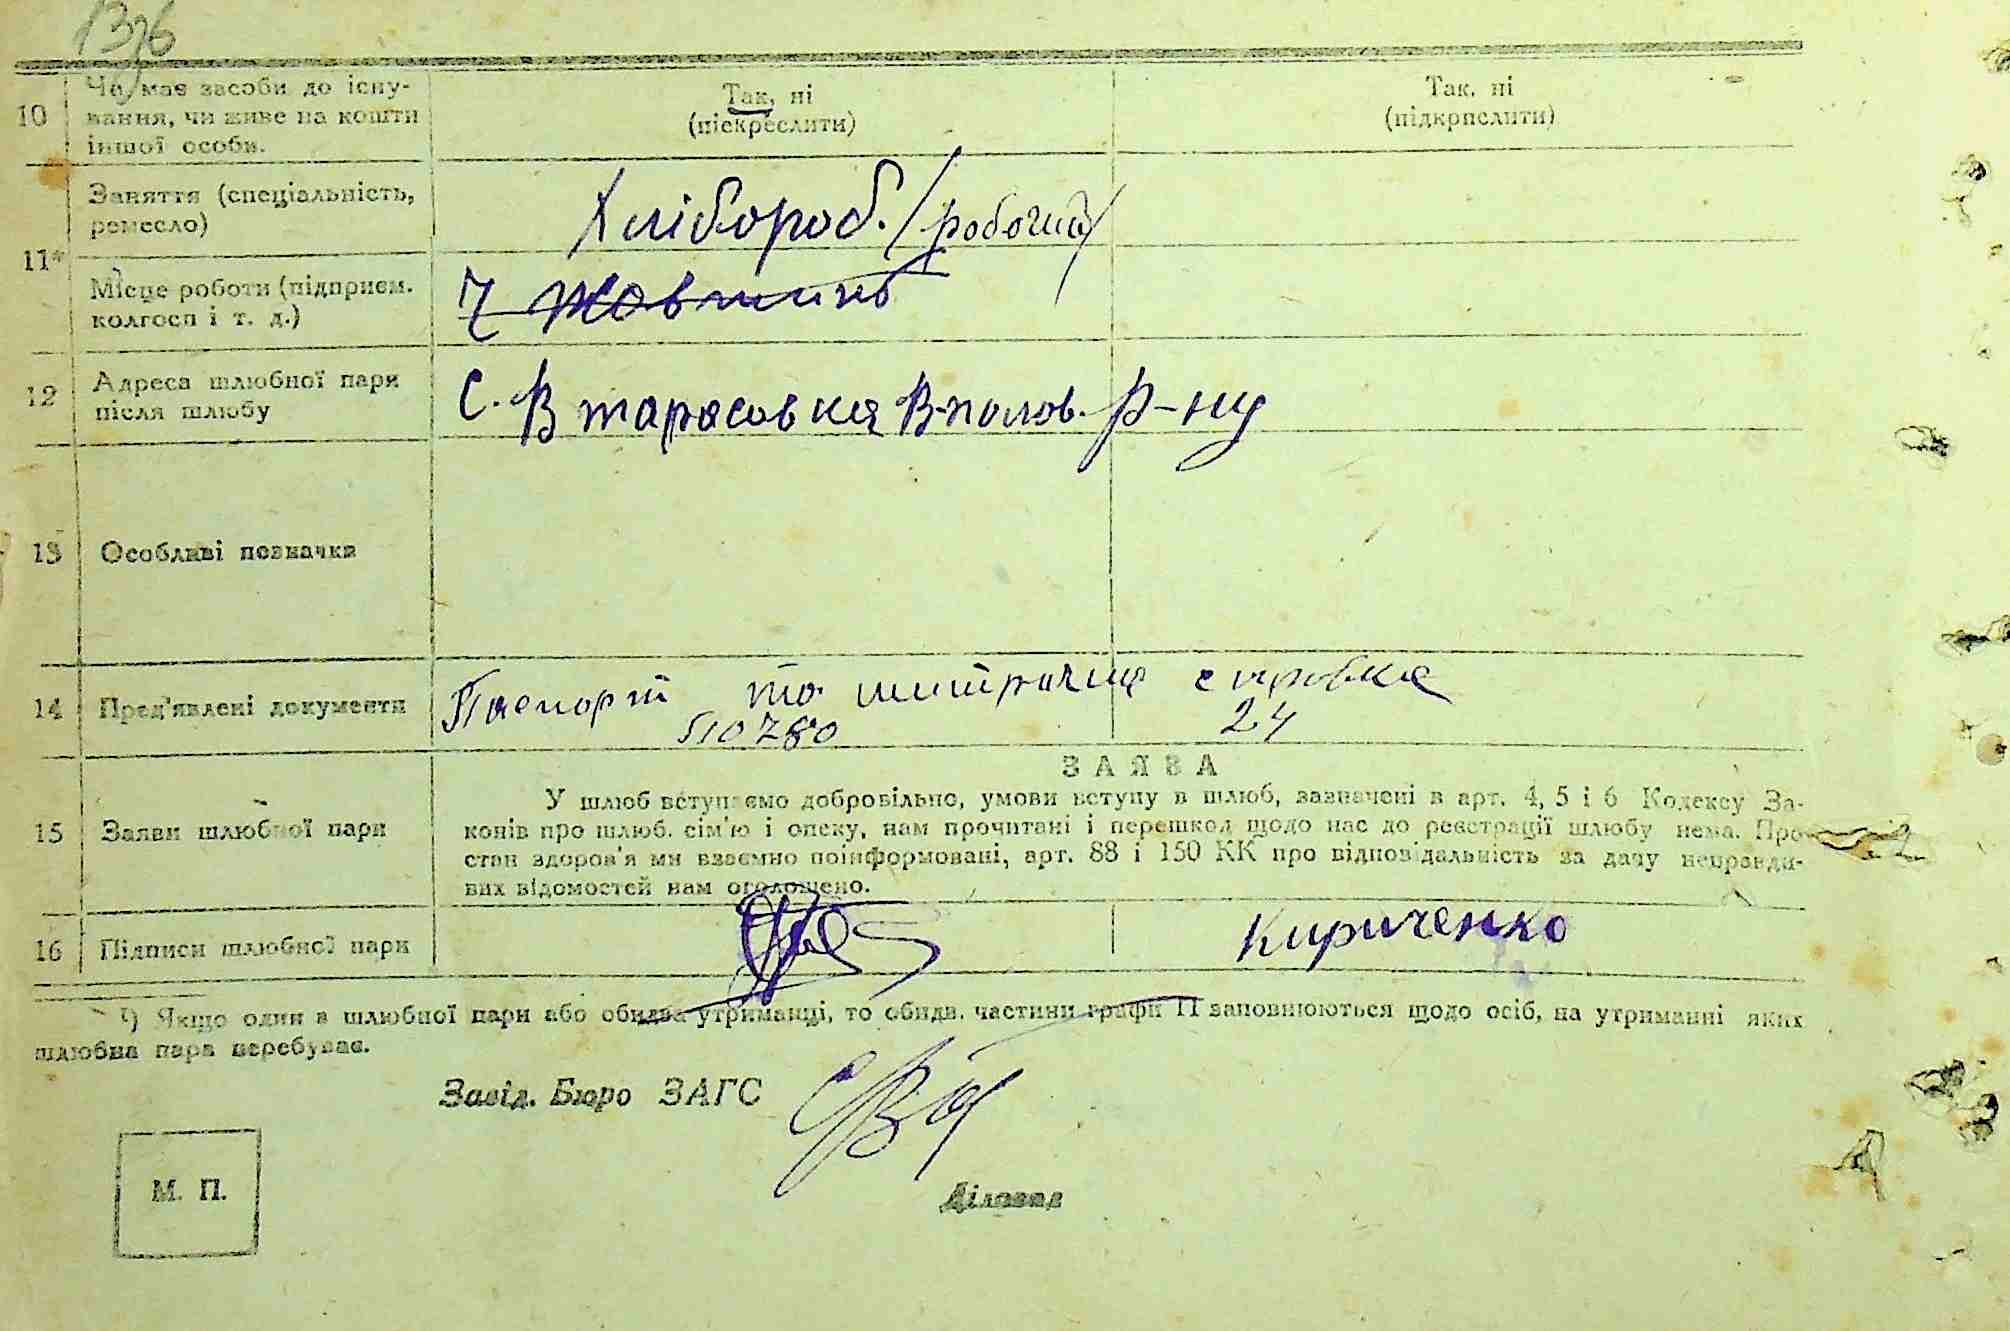 1376
10
Чи має засоби до існу-
вання, чи живе на кошти
іншої особи.
Так, ні
(піскреслити)
Так, ні
(підкрпслити)
11*
Заняття (спеціальність,
ремесло)
Хлібороб. /робочий/
Місце роботи (підприєм.
колгосп і т. д.)
7 Жовтинь
12
Адреса шлюбної пари
після шлюбу
С. В тарасовка В-полов. р-ну
13
Особливі позначки
14
Пред'явлені документи
Паспорт та митрична справка
510780 24
15
Заяви шлюбної пари
ЗАЯВА
У шлюб вступаємо добровільно, умови вступу в шлюб, зазначені в арт. 4, 5 і 6 Кодексу За-
конів про шлюб. сім'ю і опеку, нам прочитані і перешкод щодо нас до реєстрації шлюбу нема. Про
стан здоров'я ми взаємно поінформовані, арт. 88 і 150 КК про відповідальність за дачу неправди-
вих відомостей нам оголошено.
16
Підписи шлюбної пари
Кириченко
¹) Якщо один в шлюбної пари або обидва утриманці, то обидв. частини графи 11 заповнюються щодо осіб, на утриманні яких
шлюбна пара перебуває.
Завід. Бюро ЗАГС
Діловод
М. П.